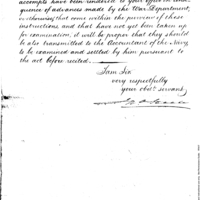 accompts have been rendered to your office in conse-
quence of advances made by the War Department,
or otherwise, that come within the purview of these
instructions and that have not yet been taken up
for examination, it will be proper that they should
be also transmitted to the Accountant of the Navy
to be examined and settled by him pursuant to
the act before recited.
I am Sir
very respectfully
your obdt. servant,